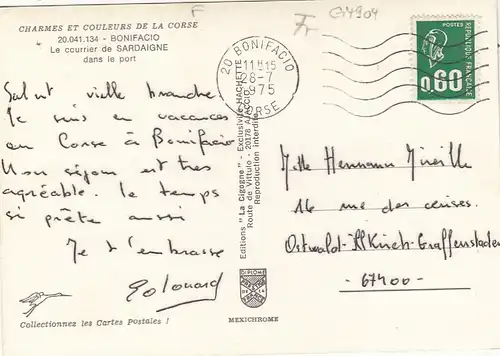 CHARMES ET COULEURS DE LA CORSE
20.041.134 - BONIFACIO
Le courrier de SARDAIGNE
dans le port
Salut vieille branche.
Je suis en vacances
en Corse à Bonifacio
Mon séjour est très
agréable. le temps
si prête aussi
Je t'embrasse
Edouard
Collectionnez les Cartes Postales !
Editions "La Cigogne" - Exclusivité HACHETTE
Route de Vittulo - 20178 AJACCIO
Reproduction interdite
DIPLOME
MEXICHROME
F
Fr
G14904
20 BONIFACIO
11H15
8-7
1975
CORSE
POSTES
REPUBLIQUE FRANÇAISE
0,60
Melle Hermann Mireille
16 rue des cerises.
Ostwald-Illkirch-Graffenstaden
- 67400 -